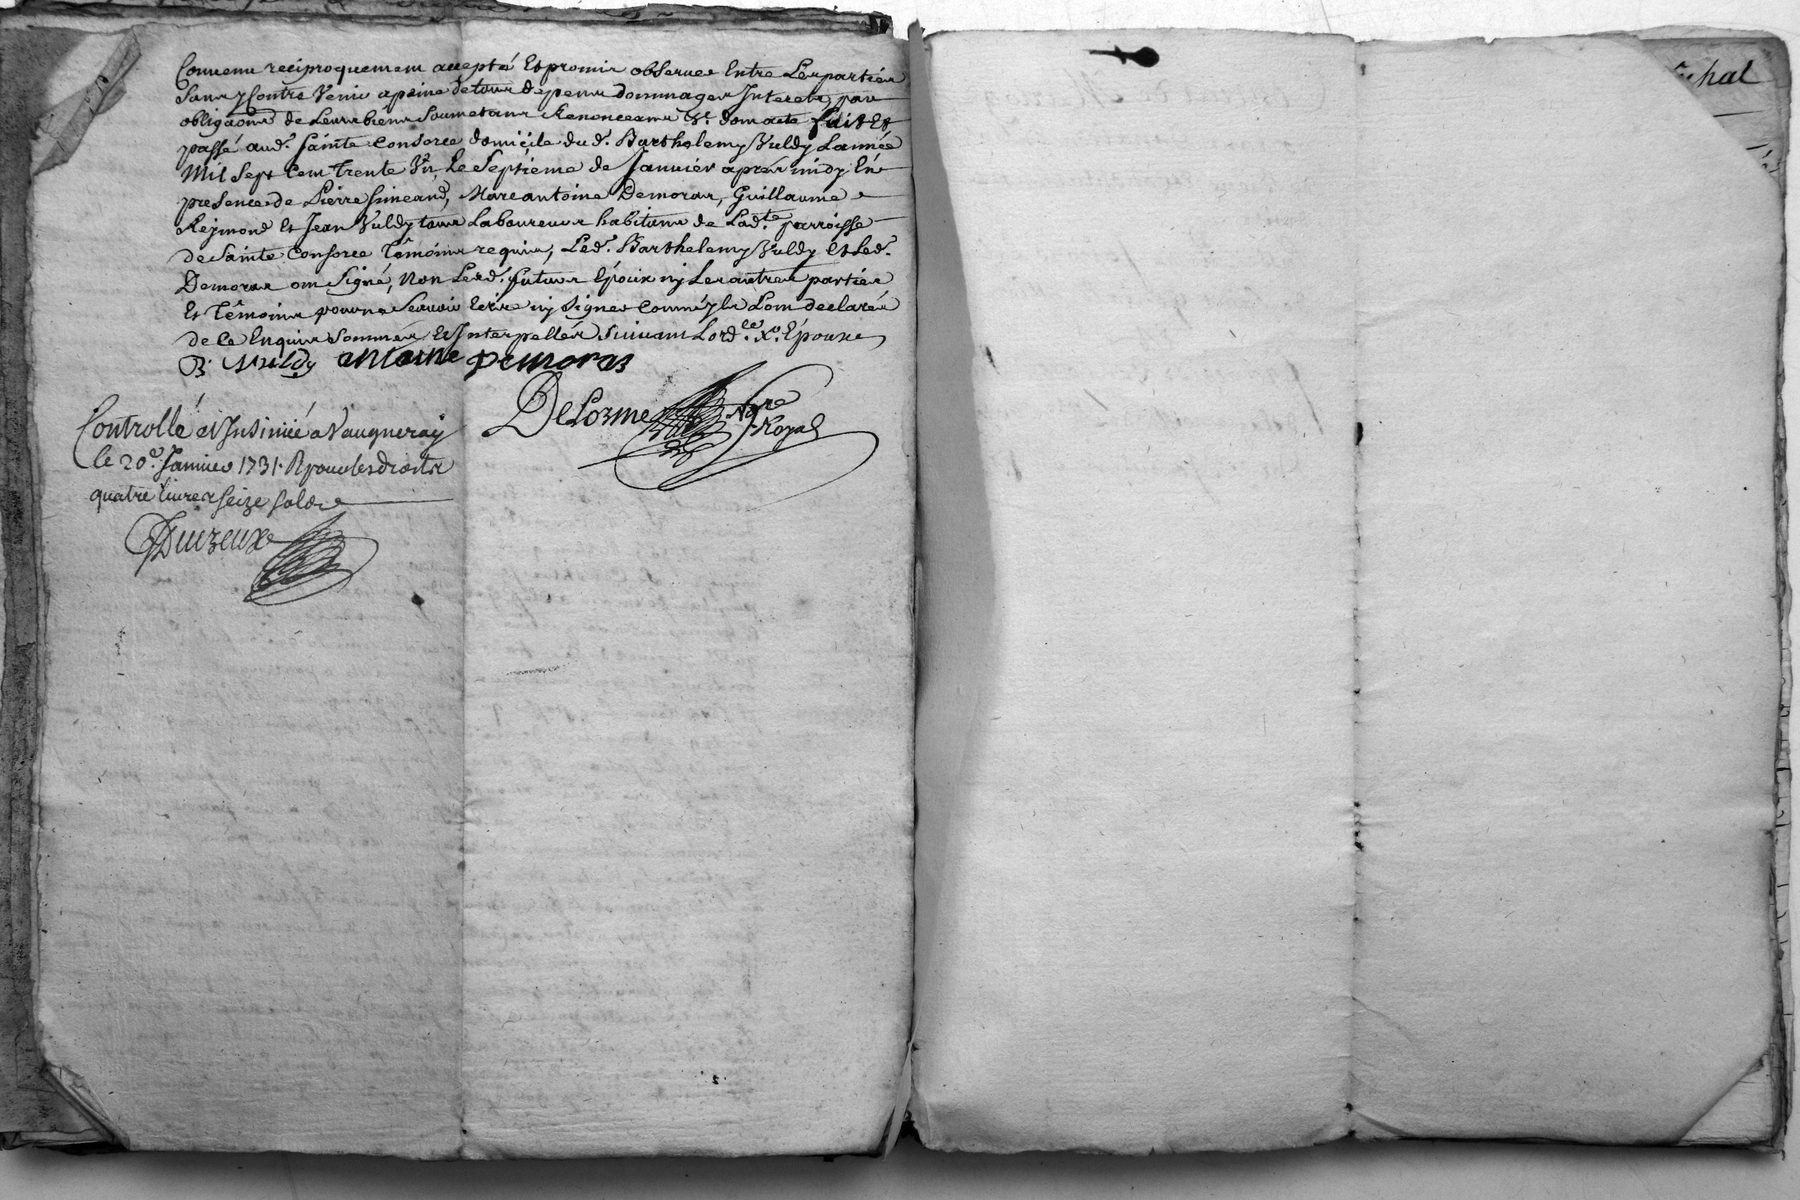 Convenu reciproquement accepté Et promis observer Entre Les parties
Sans y Contre Venir a peine de tous depens dommages Interets, par
obligaōns de Leurs biens Soumetans Renonceans &c. dont acte fait Et
passé aud. Sainte Consorce domicile dud. Barthelemy Vuldy Lannée
Mil Sept Cent Trente Vn, Le Septieme de Janvier apres midy En
presence de Pierre Simeand, Marcantoine Demoras, Guillaume
Reymond Et Jean Vuldy tous Laboureurs habitans de Lad.te parroisse
de Sainte Consorce Temoins requis, Led. Barthelemy Vuldy Et Led.
Demoras ont Signé, Non Lesd. futurs Epoux ny Les autres parties
Et Temoins pour ne Scavoir Ecrire ny Signer Comme jls Lont declarés
de ce Enquis Sommés Et Interpellés Suivant Lord.ce X. Epouse
B. Vuldy antoine Demoras
DeLorme No.re Royal
Controllé et Insinué a Vaugneray
le 20.e Janvier 1731. R pour les droits
quatre livres seize sols
Duizeux
uchal